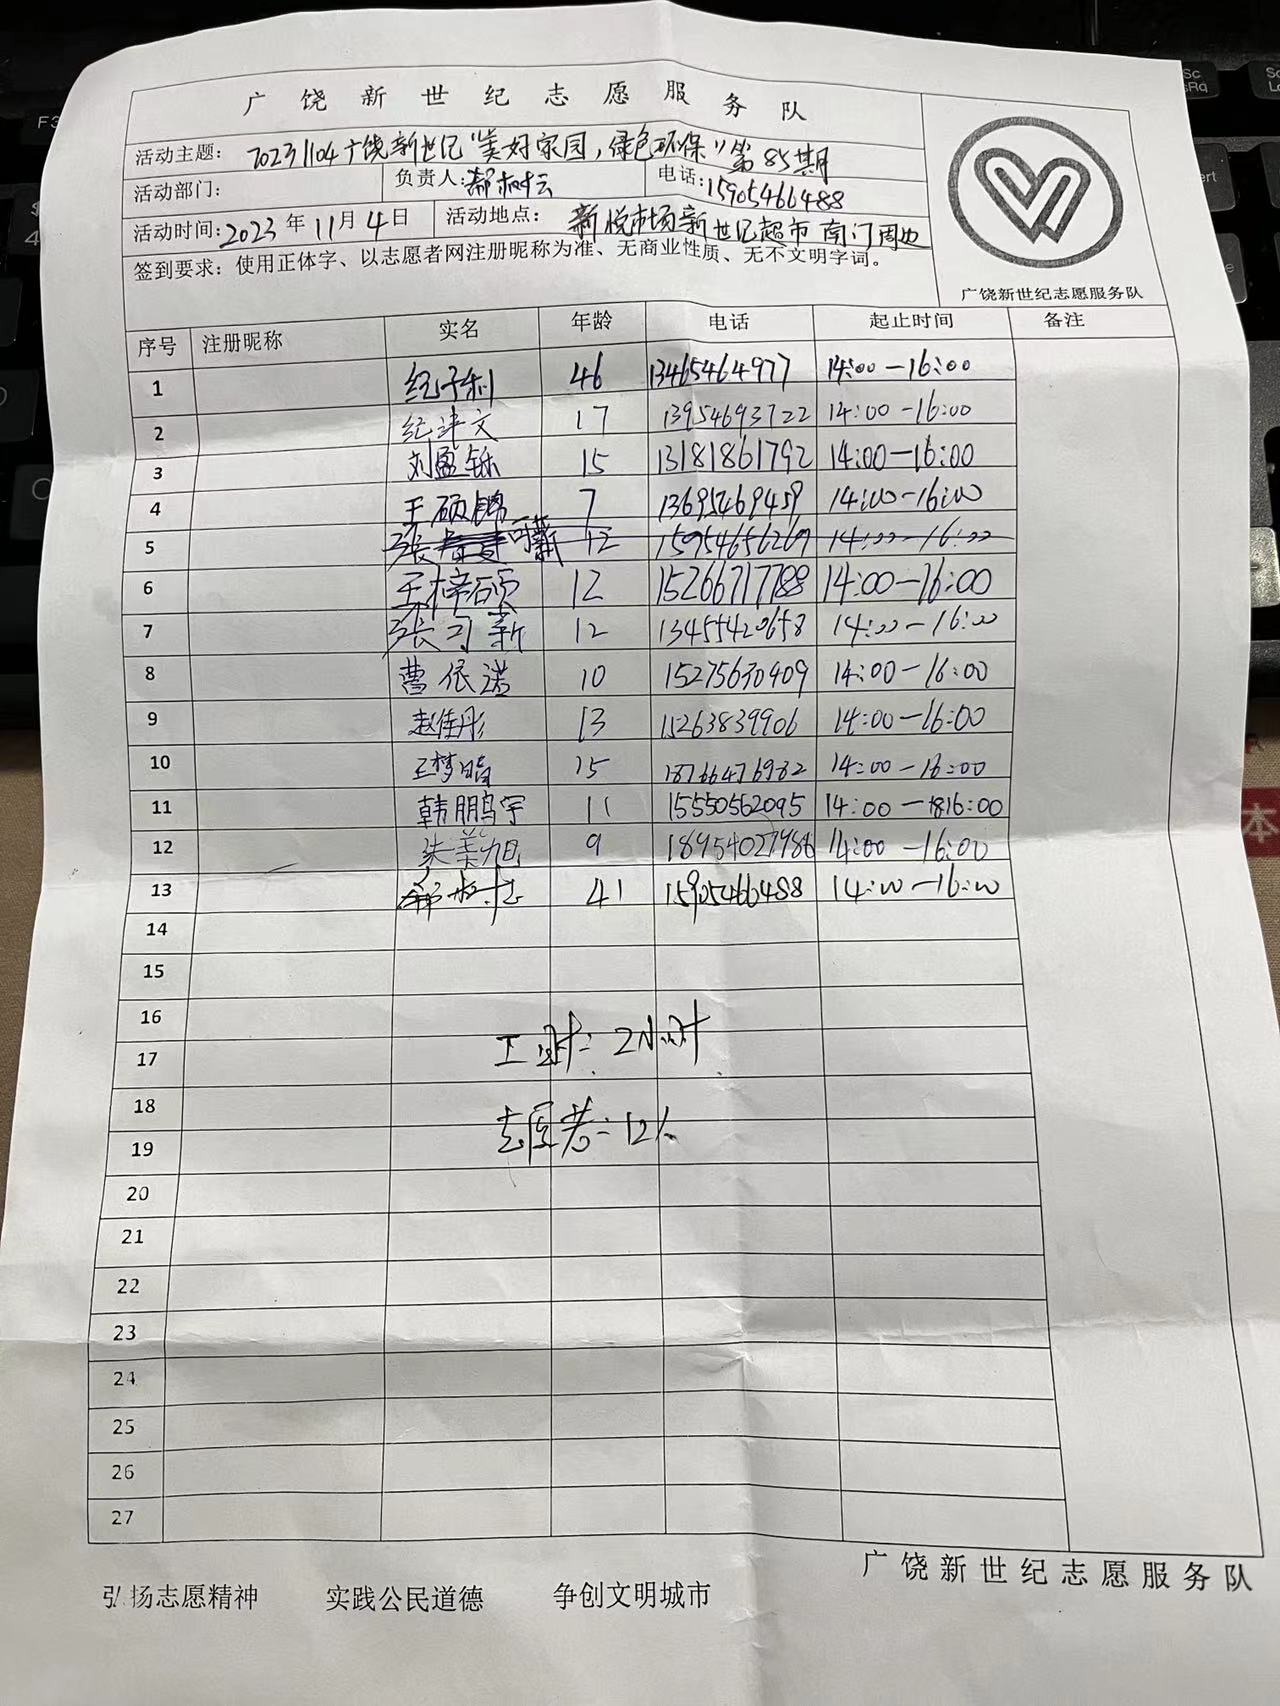 广饶新世纪志愿服务队
活动主题: 20231104广饶新世纪"美好家园,绿色环保"第85期
活动部门: 负责人: 郝树云 电话: 15905466488
活动时间: 2023年11月4日 活动地点: 新悦市场新世纪超市南门周边
签到要求: 使用正体字、以志愿者网注册昵称为准、无商业性质、无不文明字词。
广饶新世纪志愿服务队
序号 注册昵称 实名 年龄 电话 起止时间 备注
1 纪子利 46 13465464977 14:00-16:00
2 纪泽文 17 13954693722 14:00-16:00
3 刘盈铄 15 13181861792 14:00-16:00
4 王硕锦 7 13695469459 14:00-16:00
5 张 可新 12 15954656269 14:00-16:00
6 王梓硕 12 15266717788 14:00-16:00
7 张可新 12 13455420658 14:00-16:00
8 曹依诺 10 15275630409 14:00-16:00
9 赵佳彤 13 15263839906 14:00-16:00
10 王梦晴 15 18766476982 14:00-16:00
11 韩鹏宇 11 15550562095 14:00-1816:00
12 朱美旭 9 18954027986 14:00-16:00
13 郝树云 41 15905466488 14:00-16:00
14
15
16
工时:2小时
17
18
志愿者:12人
19
20
21
22
23
24
25
26
27
广饶新世纪志愿服务队
弘扬志愿精神 实践公民道德 争创文明城市